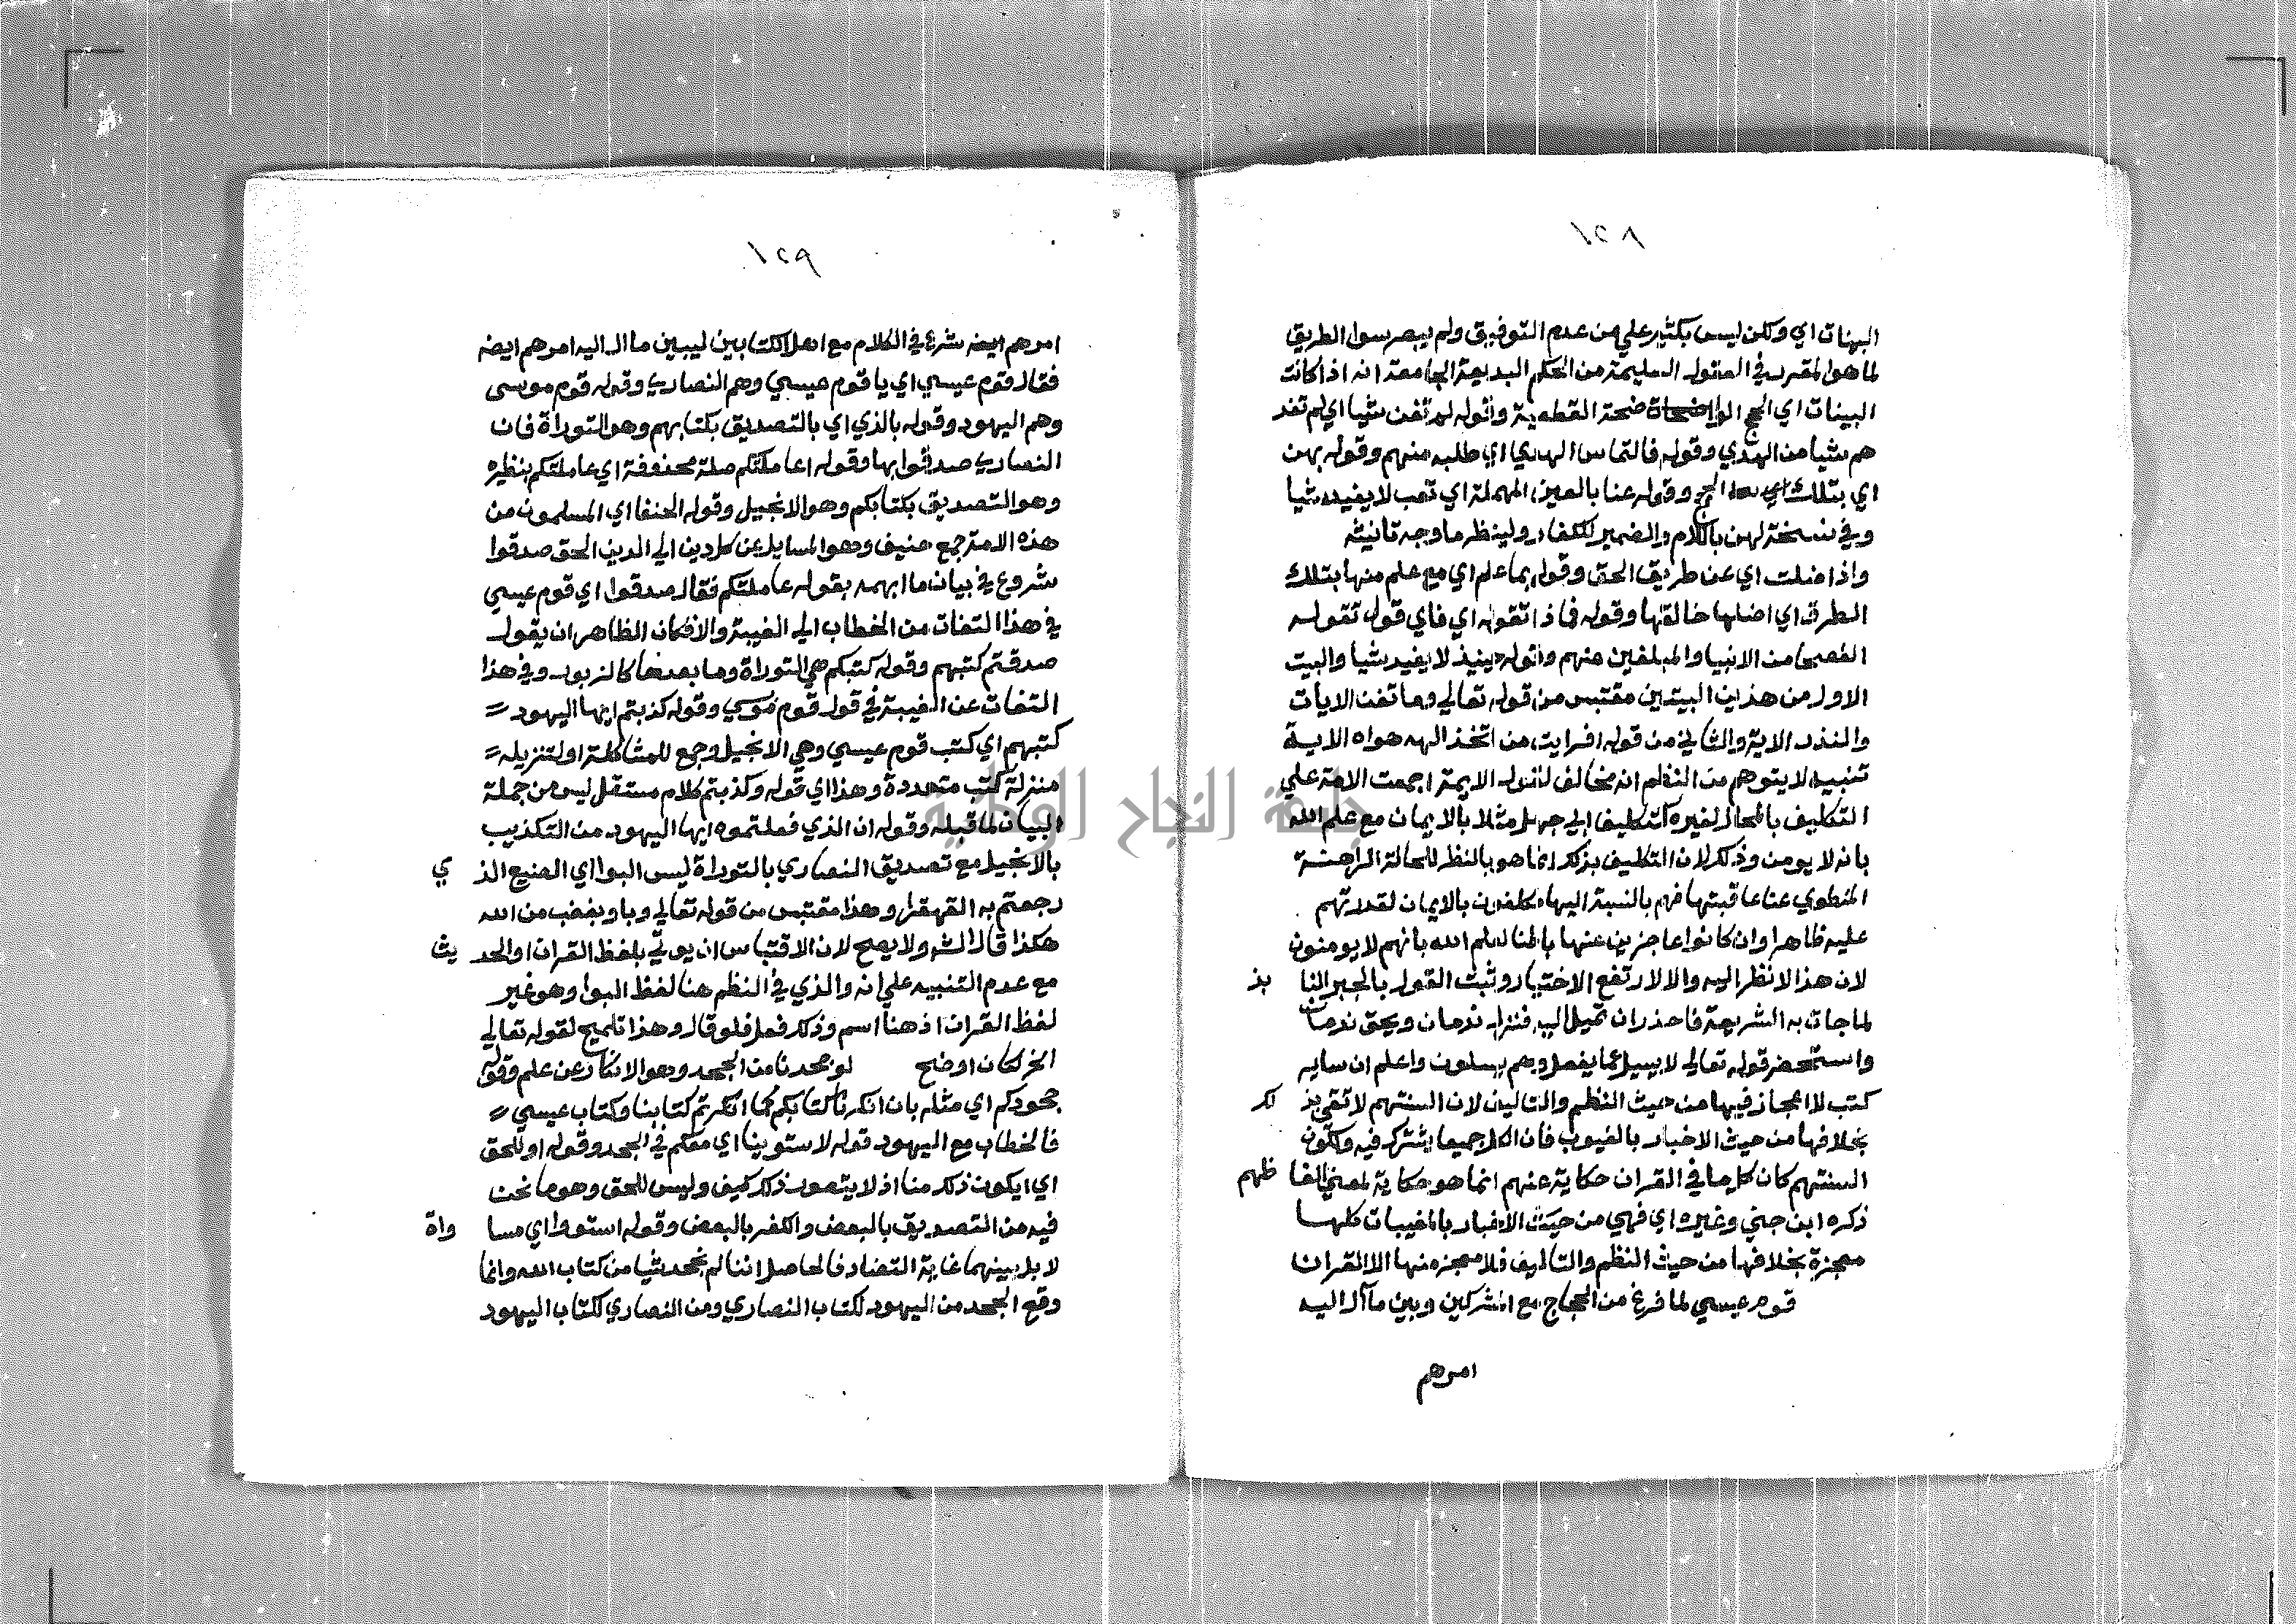 ١٢٨
البهتات اي وكلن ليس بكثير علي من عدم التوفيق ولم يبصر سوا الطريق
لما هو المقرر في العقول السليمة من الحكم البديعة الجامعة انه اذا كانت
البينات اي الحجج الواضحات القطعية وقوله لم تغن شيا اي لم تفد
هم شيا من الهدي وقوله فالتماس الهدي اي طلبه منهم وقوله بهن
اي بتلك اي الحجج وقوله عنا بالعين المهملة اي تعب لا يفيد شيا
وفي نسخة لهن باللام والضمير للكفار ولينظر ما وجه تانيثه
واذا ضلت اي عن طريق الحق وقوله بما علم اي مع علم منها بتلك
الطرق اي اضلها خالقها وقوله فماذا تقوله اي فاي قول تقوله
الفصحا من الانبيا والمبلغين عنهم وقوله حينيذ لا يفيد شيا والبيت
الاول من هذين البيتين مقتبس من قوله تعالي وما تغن الايات
والنذر الاية والثاني من قوله افرايت من اتخذ الهه هواه الاية
تنبيه لا يتوهم من النظم انه مخالف لقول الايمة اجمعت الامة علي
التكليف بالمحال لغيره كتكليف ابي جهل مثلا بالايمان مع علم الله
بانه لا يومن وذلك لان التكليف بذلك انما هو بالنظر للحالة الراهنة
المنطوي عنا عاقبتها فهم بالنسبة اليها مكلفون بالايمان لقدرتهم
عليه ظاهرا وان كانوا عاجزين عنها باطنا لعلم الله بانهم لا يومنون
لان هذا لا نظر اليه والا لارتفع الاختيار وثبت القول بالجبر المنا بذ
لما جات به الشريعة فاحذر ان تميل اليه فتزل ندمان ويحق ندمان
واستحضر قوله تعالي لا يسيل عما يفعل وهم يسلون واعلم ان ساير
كتب لا اعجاز فيها من حيث النظم والتاليف لان السنتهم لا تفي بذ لك
بخلافها من حيث الاخبار بالغيوب فان الكل جميعا اشترك فيه ولكون
السنتهم كان كل ما في القران حكاية عنهم انما هو حكاية لمعني الفا ظهم
ذكره ابن جني وغيره اي فهي من حيث الاخبار بالمغيبات كلها
معجزة بخلافها من حيث النظم والتاليف فلا معجزة منها الا القران
قوم عيسي لما فرغ من الحجاج مع المشركين وبين ما آل اليه
امرهم
١٢٩
امرهم ايضه شرع في الكلام مع اهل الكتابين ليبين ما ال اليه امرهم ايضه
فقال قوم عيسي اي يا قوم عيسي وهم النصاري وقوله قوم موسى
وهم اليهود وقوله بالذي اي بالتصديق بكتابهم وهو التوراة فان
النصاري صدقوا بها وقوله اعاملتكم صلة محذوفة اي عاملتكم بنظيره
وهو التصديق بكتابكم وهو الانجيل وقوله الحنفا اي المسلمون من
هذه الامة جمع حنيف وهو المسايل عن كل دين الي الدين الحق صدقوا
شروع في بيان ما ابهمه بقوله عاملتكم فقال صدقوا اي قوم عيسي
في هذا التفات من الخطاب الي الغيبة والا فكان الظاهر ان يقول
صدقتم كتبهم وقوله كتبكم هي التوراة وما بعدها كالزبور وفي هذا
التفات عن الغيبة في قوله قوم موسي وقوله كذبتم ايها اليهود =
كتبهم اي كتب قوم عيسي وهي الانجيل وجمع للمشاكلة او لتنزيله =
منزلة كتب متعددة وهذا اي قوله وكذبتم كلام مستقل ليس من جملة
البيان لما قبله وقوله ان الذي فعلتموه ايها اليهود من التكذيب
بالانجيل مع تصديق النصاري بالتوراة ليس البوا اي الصنيع الذ ي
رجعتم به القهقرا وهذا مقتبس من قوله تعالي وباو بغضب من الله
هكذا قال الش ولا يصح لان الاقتباس ان يوتي بلفظ القران او الحد يث
مع عدم التنبيه علي انه والذي في النظم هنا لفظ البوا وهو غير
لفظ القران اذ هنا اسم وذلك فعل فلو قال وهذا تلميح لقوله تعالي
الخ لكان اوضح لو جحدنا من الجحد وهو الانكار عن علم وقوله
جحودكم اي مثله بان انكرنا كتابكم كما انكرتم كتابنا وكتاب عيسي =
فالخطاب مع اليهود قوله لاستوينا اي معكم في الجحد وقوله او للحق
اي ايكون ذلك منا اذ لا يتصور ذلك كيف وليس للحق وهو ما نحن
فيه من التصديق بالبعض والكفر بالبعض وقوله استووا اي مسا واة
لا بل بينهما غاية التضاد فالحاصل اننا لم نجحد شيا من كتاب الله وانما
وقع الجحد من اليهود لكتاب النصاري ومن النصاري لكتاب اليهود
جامعة النجاح الوطنية